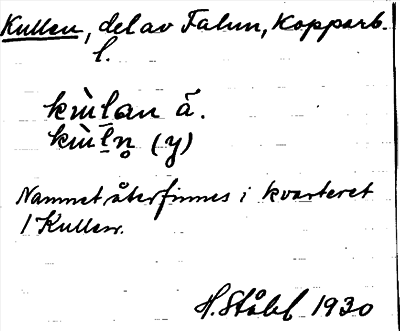 Kullen, del av Falun, Kopparb.
l.
kùlan ā.
kùln̥ (y)
Namnet återfinnes i kvarteret
Kullen.
H. Ståhl 1930